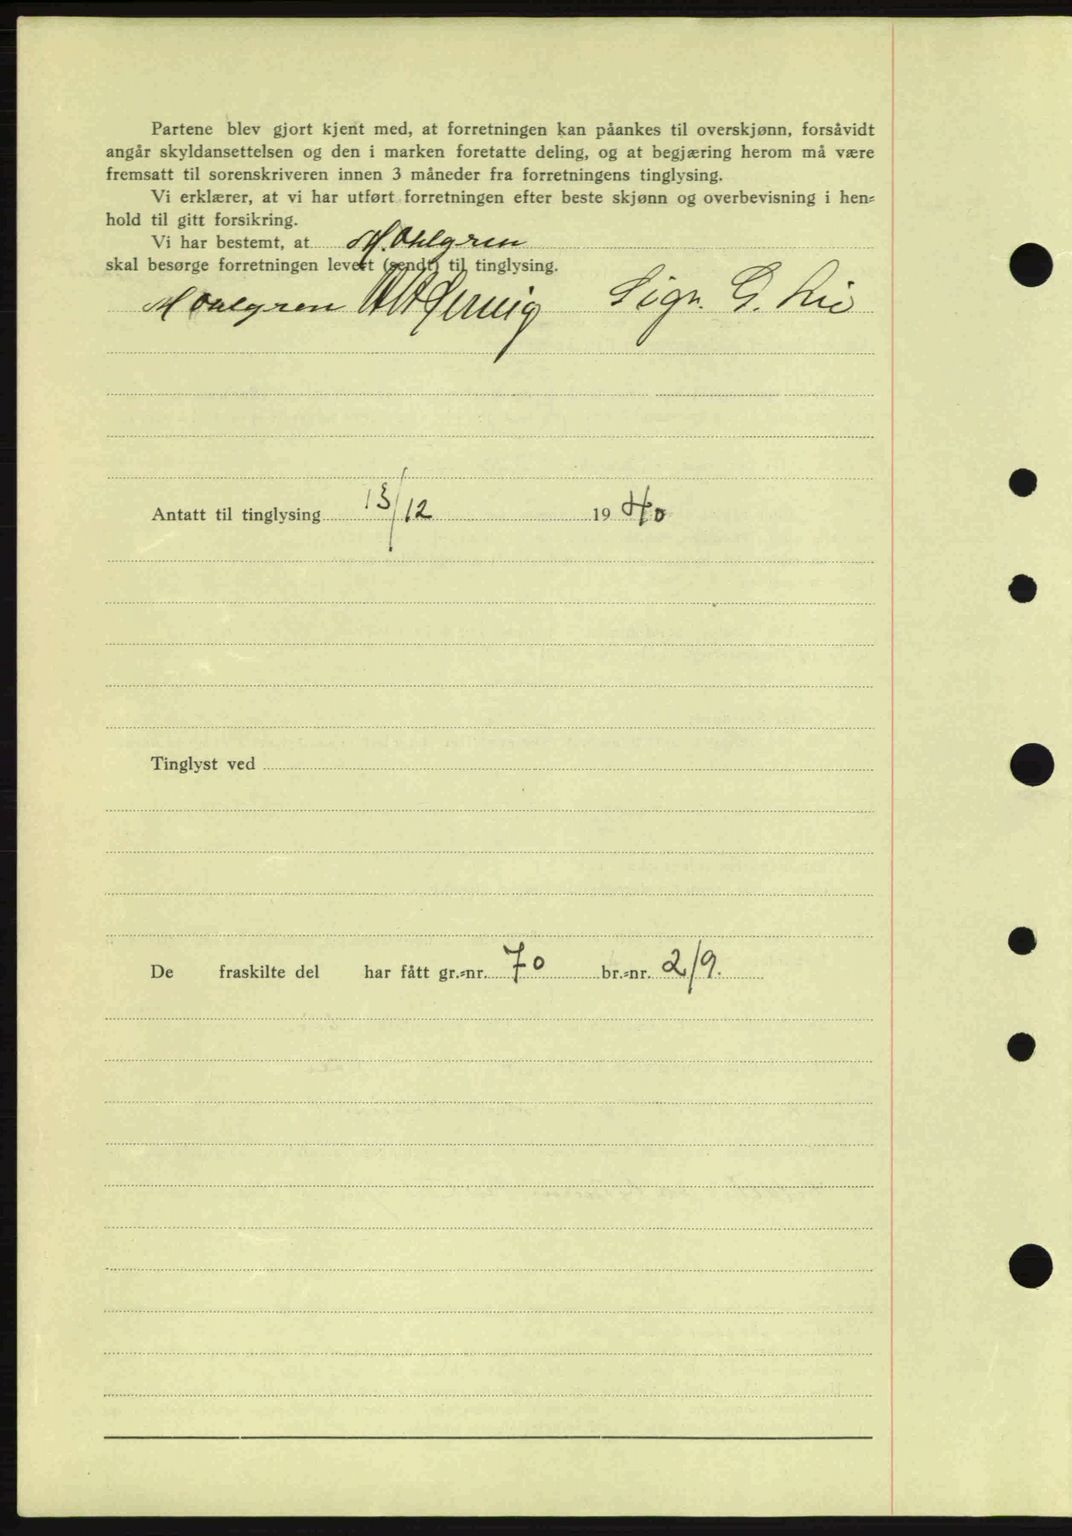 Partene blev gjort kjent med, at forretningen kan påankes til overskjønn, forsåvidt
angår skyldansettelsen og den i marken foretatte deling, og at begjæring herom må være
fremsatt til sorenskriveren innen 3 måneder fra forretningens tinglysing.
Vi erklærer, at vi har utført forretningen efter beste skjønn og overbevisning i hen=
hold til gitt forsikring.
Vi har bestemt, at M. Ohlgren
skal besørge forretningen levert (sendt) til tinglysing.
M Ohlgren Sign. G. Lie
Antatt til tinglysing 13/12 1940
Tinglyst ved
De fraskilte del har fått gr.=nr. 70 br.=nr. 2/9.